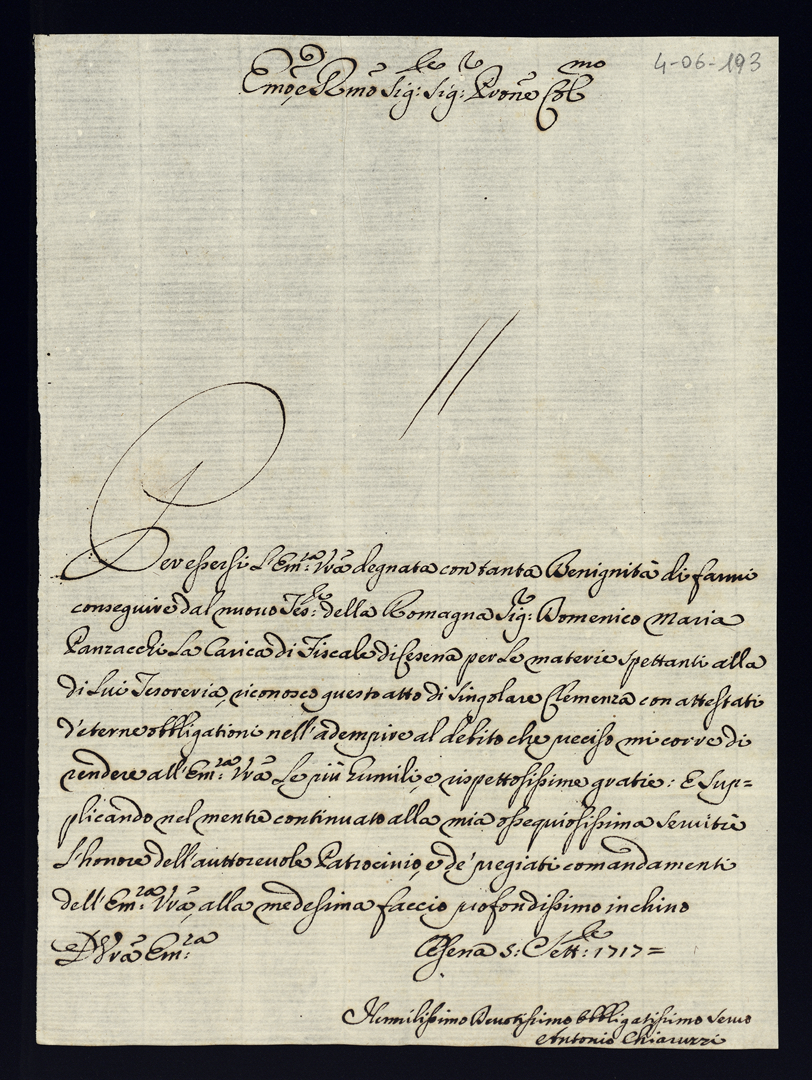 4-06-193
Emo, e Rmo Sig:re Sig:r Prone Col:mo
Per essersi l'Em:za Vra degnata con tanta Benignità di farmi
conseguire dal nuovo Tes:re della Romagna Sig:r Domenico Maria
Panzacchi La Carica di Fiscale di Cesena per le materie spettanti alla
di Lui Tesoreria, riconosco questo atto di singolare Clemenza con attestati
d'eterne obbligationi nell'adempire al debito che preciso mi corre di
rendere all'Em:za Vra Le più humili, e rispettosissime gratie: E sup=
plicando nel mentre continuato alla mia ossequiosissima servitù
l'honore dell'auttorevole Patrocinio, e de' pregiati comandamenti
dell'Em:za Vra, alla medesima faccio profondissimo inchino
D Vra Em:za Cesena 5: Sett:re 1717=
Humilissimo Devotissimo Obbligatissimo Servo
Antonio Chiaruzzi